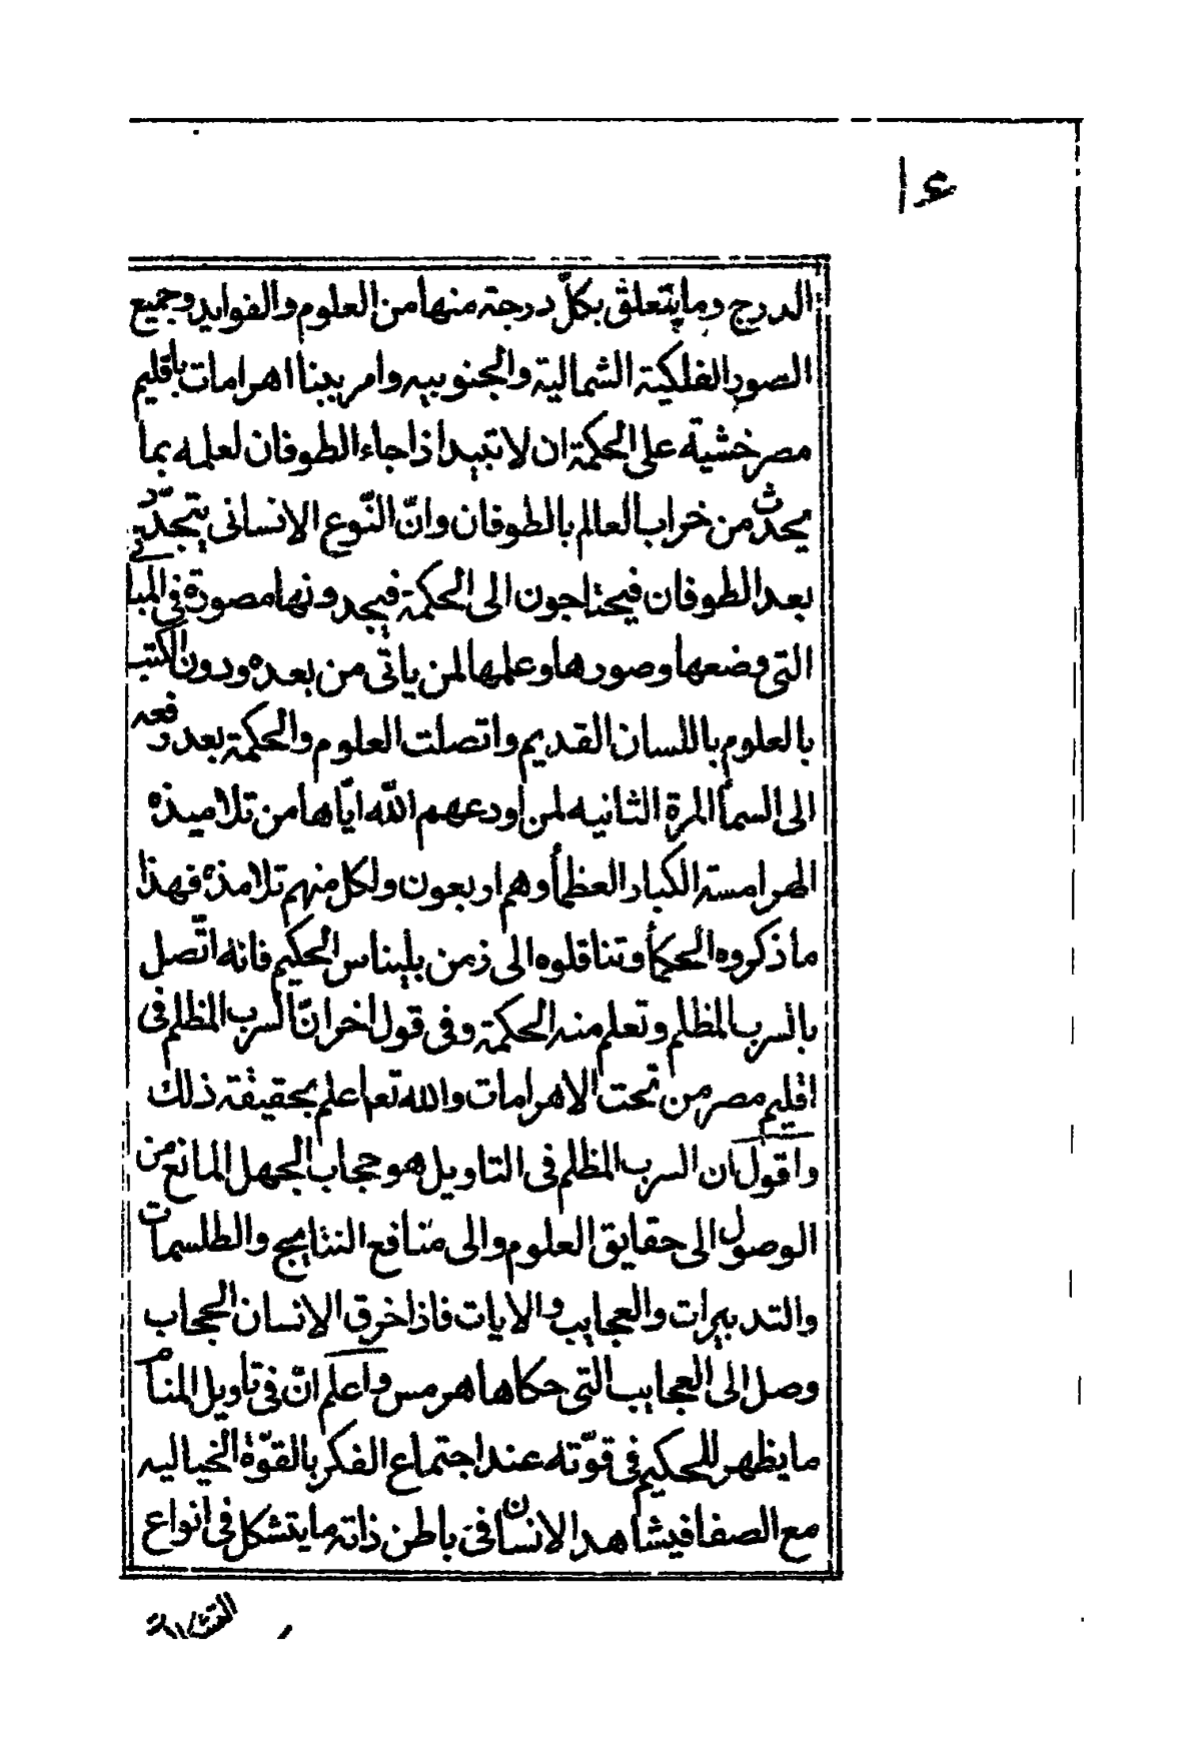 الدرج وما يتعلق بكلّ درجة منها من العلوم والفوايد وجميع
الصور الفلكية الشمالية والجنوبيه وامر ببنا اهرامات باقليم
مصر خشية على الحكمة ان لا تبيد اذا جاء الطوفان لعلمه بما
يحدث من خراب العالم بالطوفان وانّ النّوع الانسانى يتجدّد
بعد الطوفان فيحتاجون الى الحكمة فيجدونها مصورة فى المبا
التى وضعها وصورها وعلمها لمن ياتى من بعده ودون الكتب
بالعلوم باللسان القديم واتصلت العلوم والحكمة بعد رفعه
الى السمأ المرة الثانيه لمن اودعهم اللّه ايّاها من تلاميذه
الهرامسة الكبار العظمأ وهم اربعون ولكل منهم تلامذة فهذا
ما ذكروه الحكمأ وتناقلوه الى زمن بليناس الحكيم فانه اتّصل
بالسرب المظلم وتعلم منه الحكمة وفى قول اخر انّ السرب المظلم فى
اقليم مصر من تحت الاهرامات والله تعا اعلم بحقيقة ذلك
واقول ان السرب المظلم فى التاويل هو حجاب الجهل المانع من
الوصول الى حقايق العلوم والى منافع النتايج والطلسمات
والتدبيرات والعجايب والايات فاذا خرق الانسان الحجاب
وصل الى العجايب التى حكاها هرمس واعلم انّ فى تاويل المنام
ما يظهر للحكيم فى قوّته عند اجتماع الفكر بالقوّة الخياليه
مع الصفا فيشاهد الانسان فى باطن ذاته ما يتشكل فى انواع